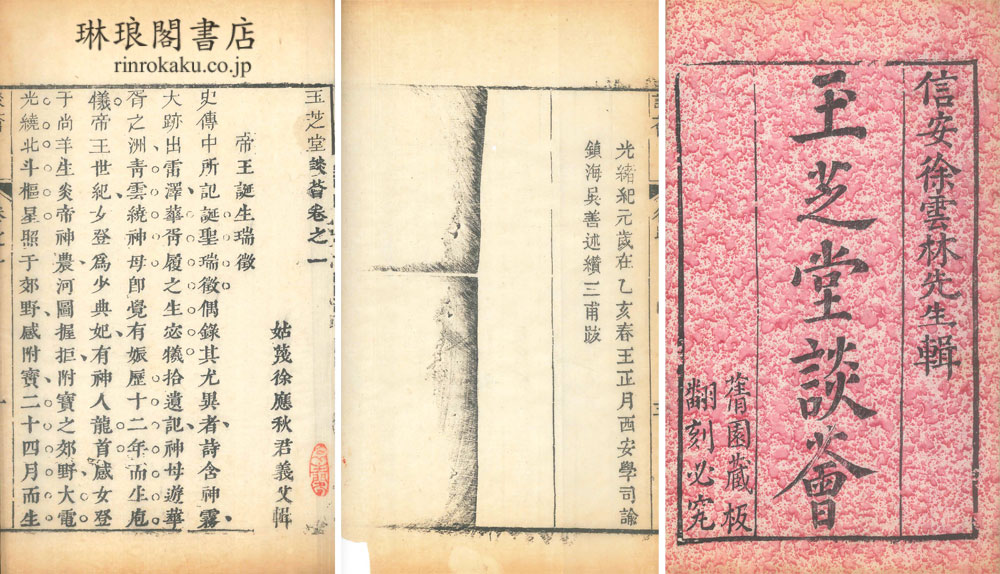 琳琅閣書店
rinrokaku.co.jp
信安徐雲林先生輯
玉芝堂談薈
蒨園藏板
翻刻必究
光緒紀元歲在乙亥春王正月西安學司諭
鎮海吳善述纘三甫跋
玉芝堂談薈卷之一
姑蔑徐應秋君義父輯
帝王誕生瑞徵
史傳中所記誕聖瑞徵偶錄其尤異者詩含神霧
大跡出雷澤華胥履之生宓犧拾遺記神母遊華
胥之洲青雲繞神母卽覺有娠歷十二年而生庖
儀帝王世紀女登爲少典妃有神人龍首感女登
于尚羊生炎帝神農河圖握拒附寶之郊野大電
光繞北斗樞星照于郊野感附寶二十四月而生